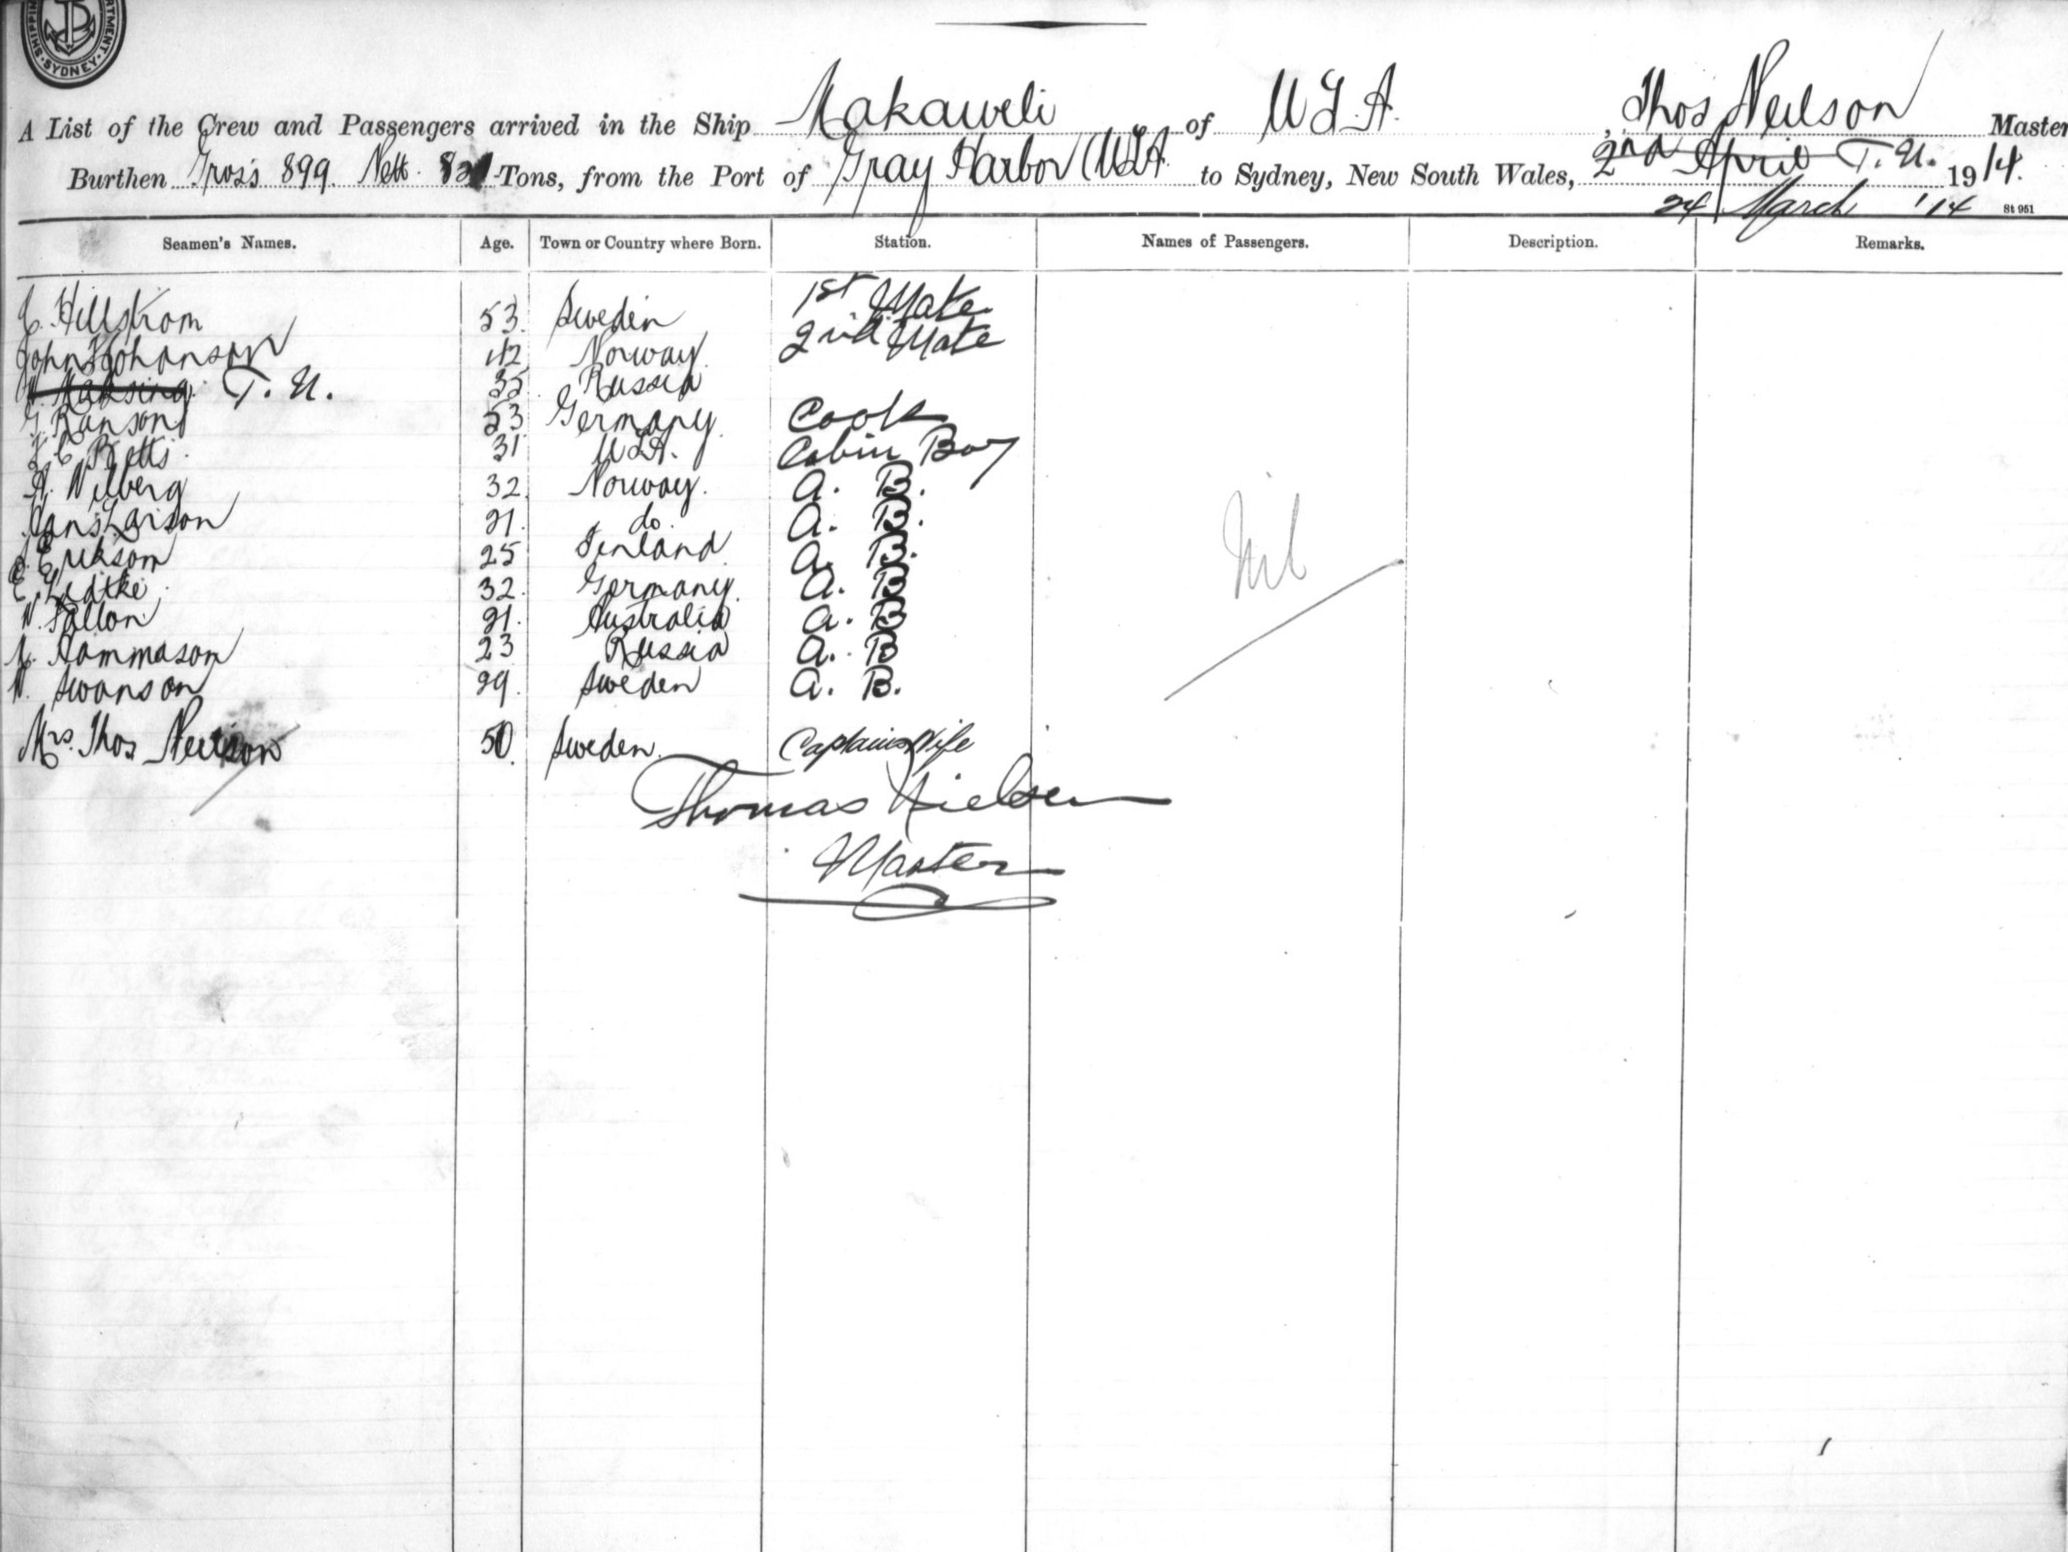 SHIPPIN RTMENT. SYDNEY.
A List of the Crew and Passengers arrived in the Ship Makaweli of U S. A. , Thos Neilson Master
Burthen Gross 899. Nett. Tons, from the Port of Gray Harbor USA to Sydney, New South Wales, 2nd April T. N. 1914.
24 March '14 St 951
Seamen's Names. Age. Town or Country where Born. Station. Names of Passengers. Description. Remarks.
Hillstrom 53. Sweden 1st Mate
John Johanson 42 Norway. 2nd Mate
T. N. 35 Russia
G. Ranson 53 Germany Cook
Betts. 31 USA. Cabin Boy
A. Wilberg 32. Norway. A. B.
Hans Larson 21. do. A. B.
Erikson 25 Finland A. B.
E. Liatke. 32. Germany. A. B
W. Fallon 21. Australia A. B
Hammason 23 Russia A. B
W. Swanson 29. Sweden A. B.
Mrs. Thos Neilson 50. Sweden. Captains Wife
Nil
Thomas Nielsen
Master